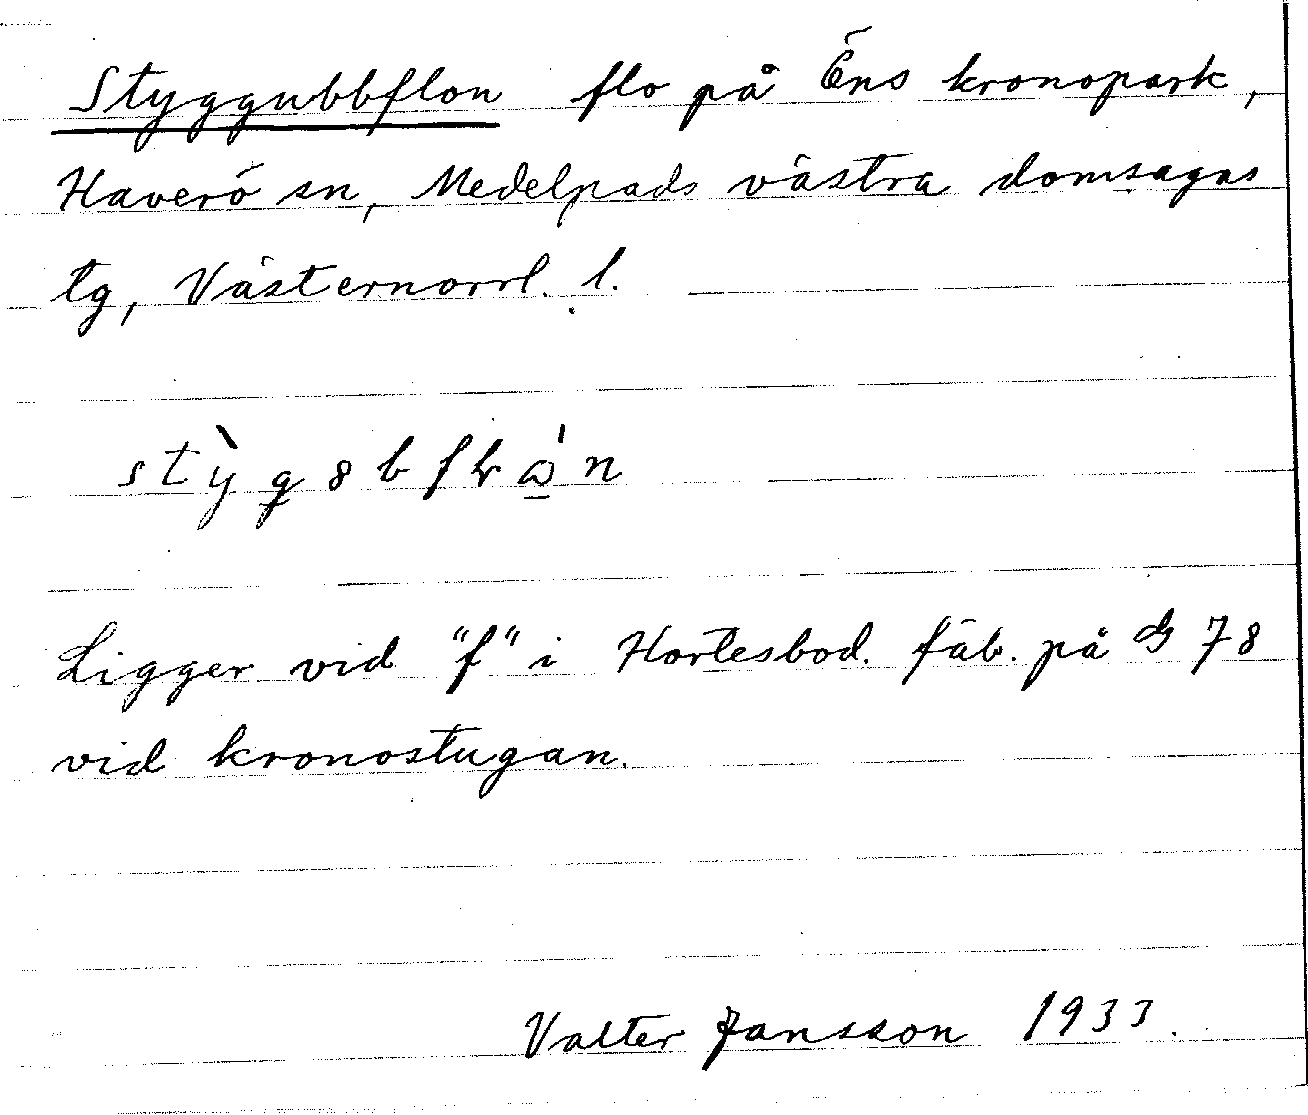 Styggubbflon flo på Öns kronopark,
Haverö sn, Medelpads västra domsagas
tg, Västernorrl. l.
Ligger vid "f" i Hortesbod. fäb. på 78
vid kronostugan.
Valter Jansson 1933.